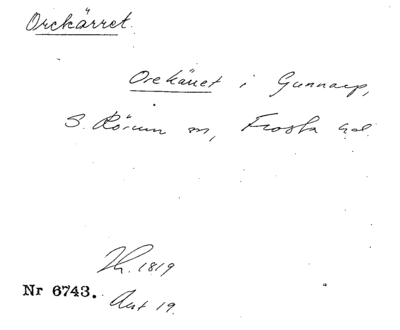 Orekärret.
Orekäret i Gunnarp,
S. Rörum sn, Frosta hd.
Th. 1819
Nr 6743. Akt 19.